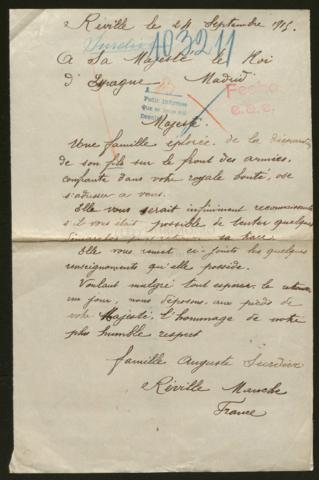 Réville le 24 Septembre 1915.
103211
A Sa Majesté le Roi
d'Espagne Madrid
A
Petit Informe
Fecho
e.a.e.
Majesté.
Une famille éplorée, de la disparution
de son fils sur le front des armées,
confiante dans votre royale bonté, ose
s'adresser a vous.
Elle vous serait infiniment reconnaissante
s'il vous était possible de tenter quelques
sa trace.
Elle vous remet ci-joints les quelques
renseignements qu'elle possède.
Voulant malgré tout esperer, le retour
un jour, nous déposons aux pieds de
votre Majesté, l'hommage de notre
plus humble respect
famille Auguste
Réville Manche
France